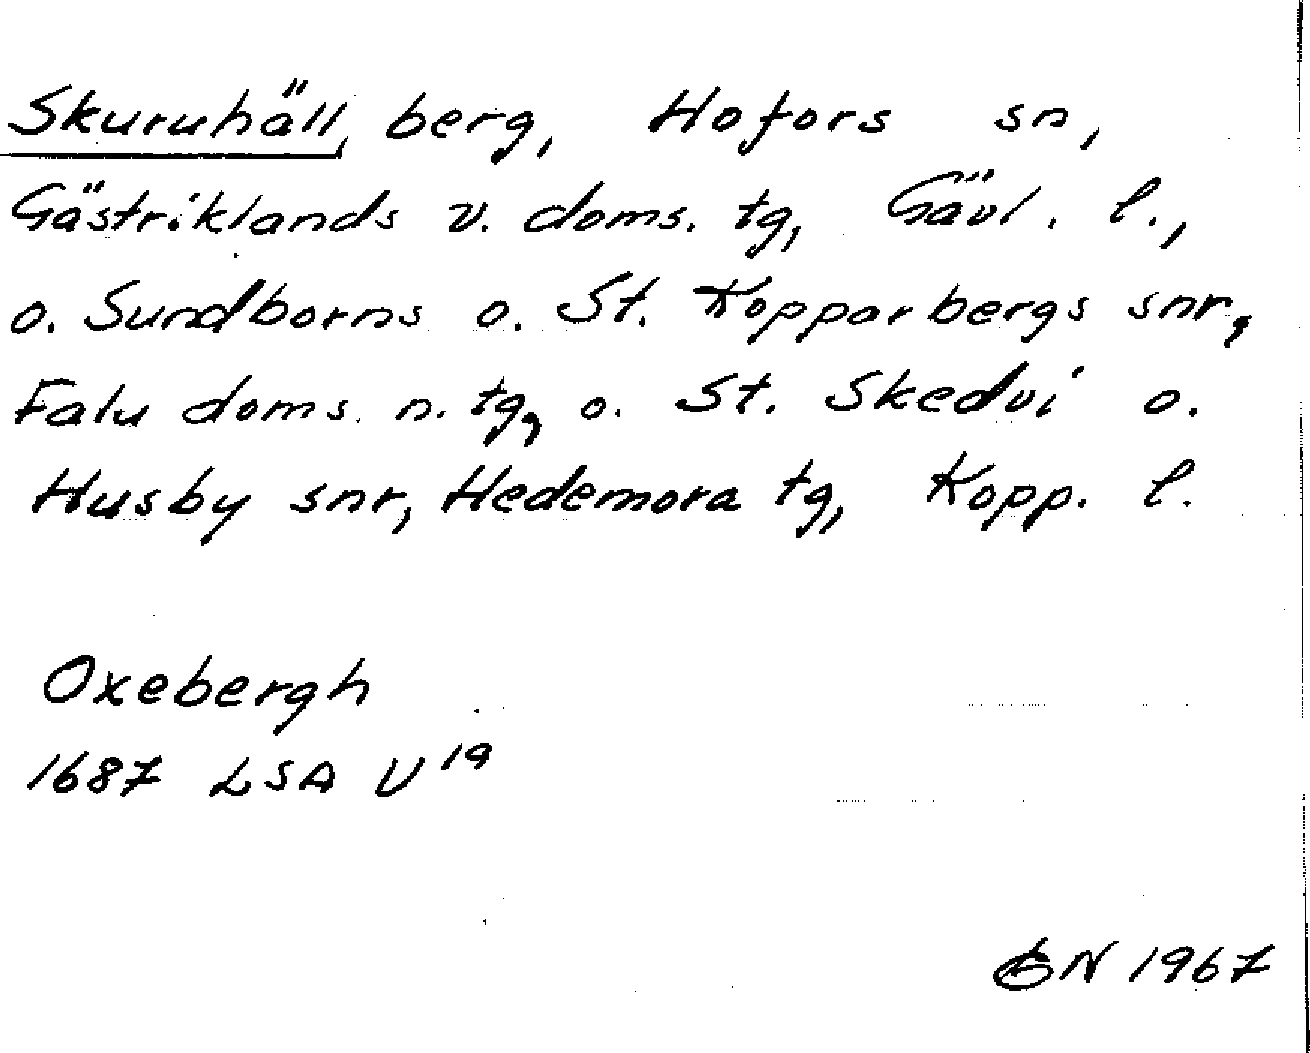 Skuruhäll, berg, Hofors sn,
Gästriklands v. doms. tg, Gävl. l.,
o. Sundborns o. St. Kopparbergs snr,
Falu doms. n. tg, o. St. Skedvi o.
Husby snr, Hedemora tg, Kopp. l.
Oxebergh
1687 LSA U19
GN 1967